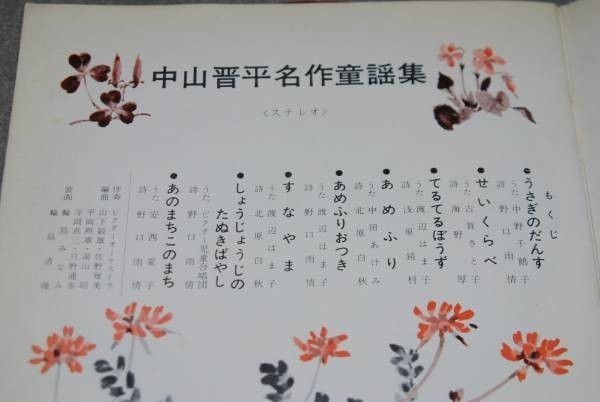 中山晋平名作童謡集
〈ステレオ〉
もくじ
●うさぎのだんす
うた 中野千鶴子
詩 野口雨情
●せいくらべ
うた 古賀さと子
詩 海野 厚
●てるてるぼうず
うた 渡辺はま子
詩 浅原鏡村
●あめふり
うた 中田あけみ
詩 北原白秋
●あめふりおつき
うた 渡辺はま子
詩 野口雨情
●すなやま
うた 渡辺はま子
詩 北原白秋
●しょうじょうじの
たぬきばやし
うた ビクター児童合唱団
詩 野口雨情
●あのまちこのまち
うた 安西愛子
詩 野口雨情
伴奏 ビクターオーケストラ
編曲 山下毅雄・佐野雅美
平岡照章・湯山昭
寺岡真三・只野通泰
装画 輪島みなみ
輪島清隆